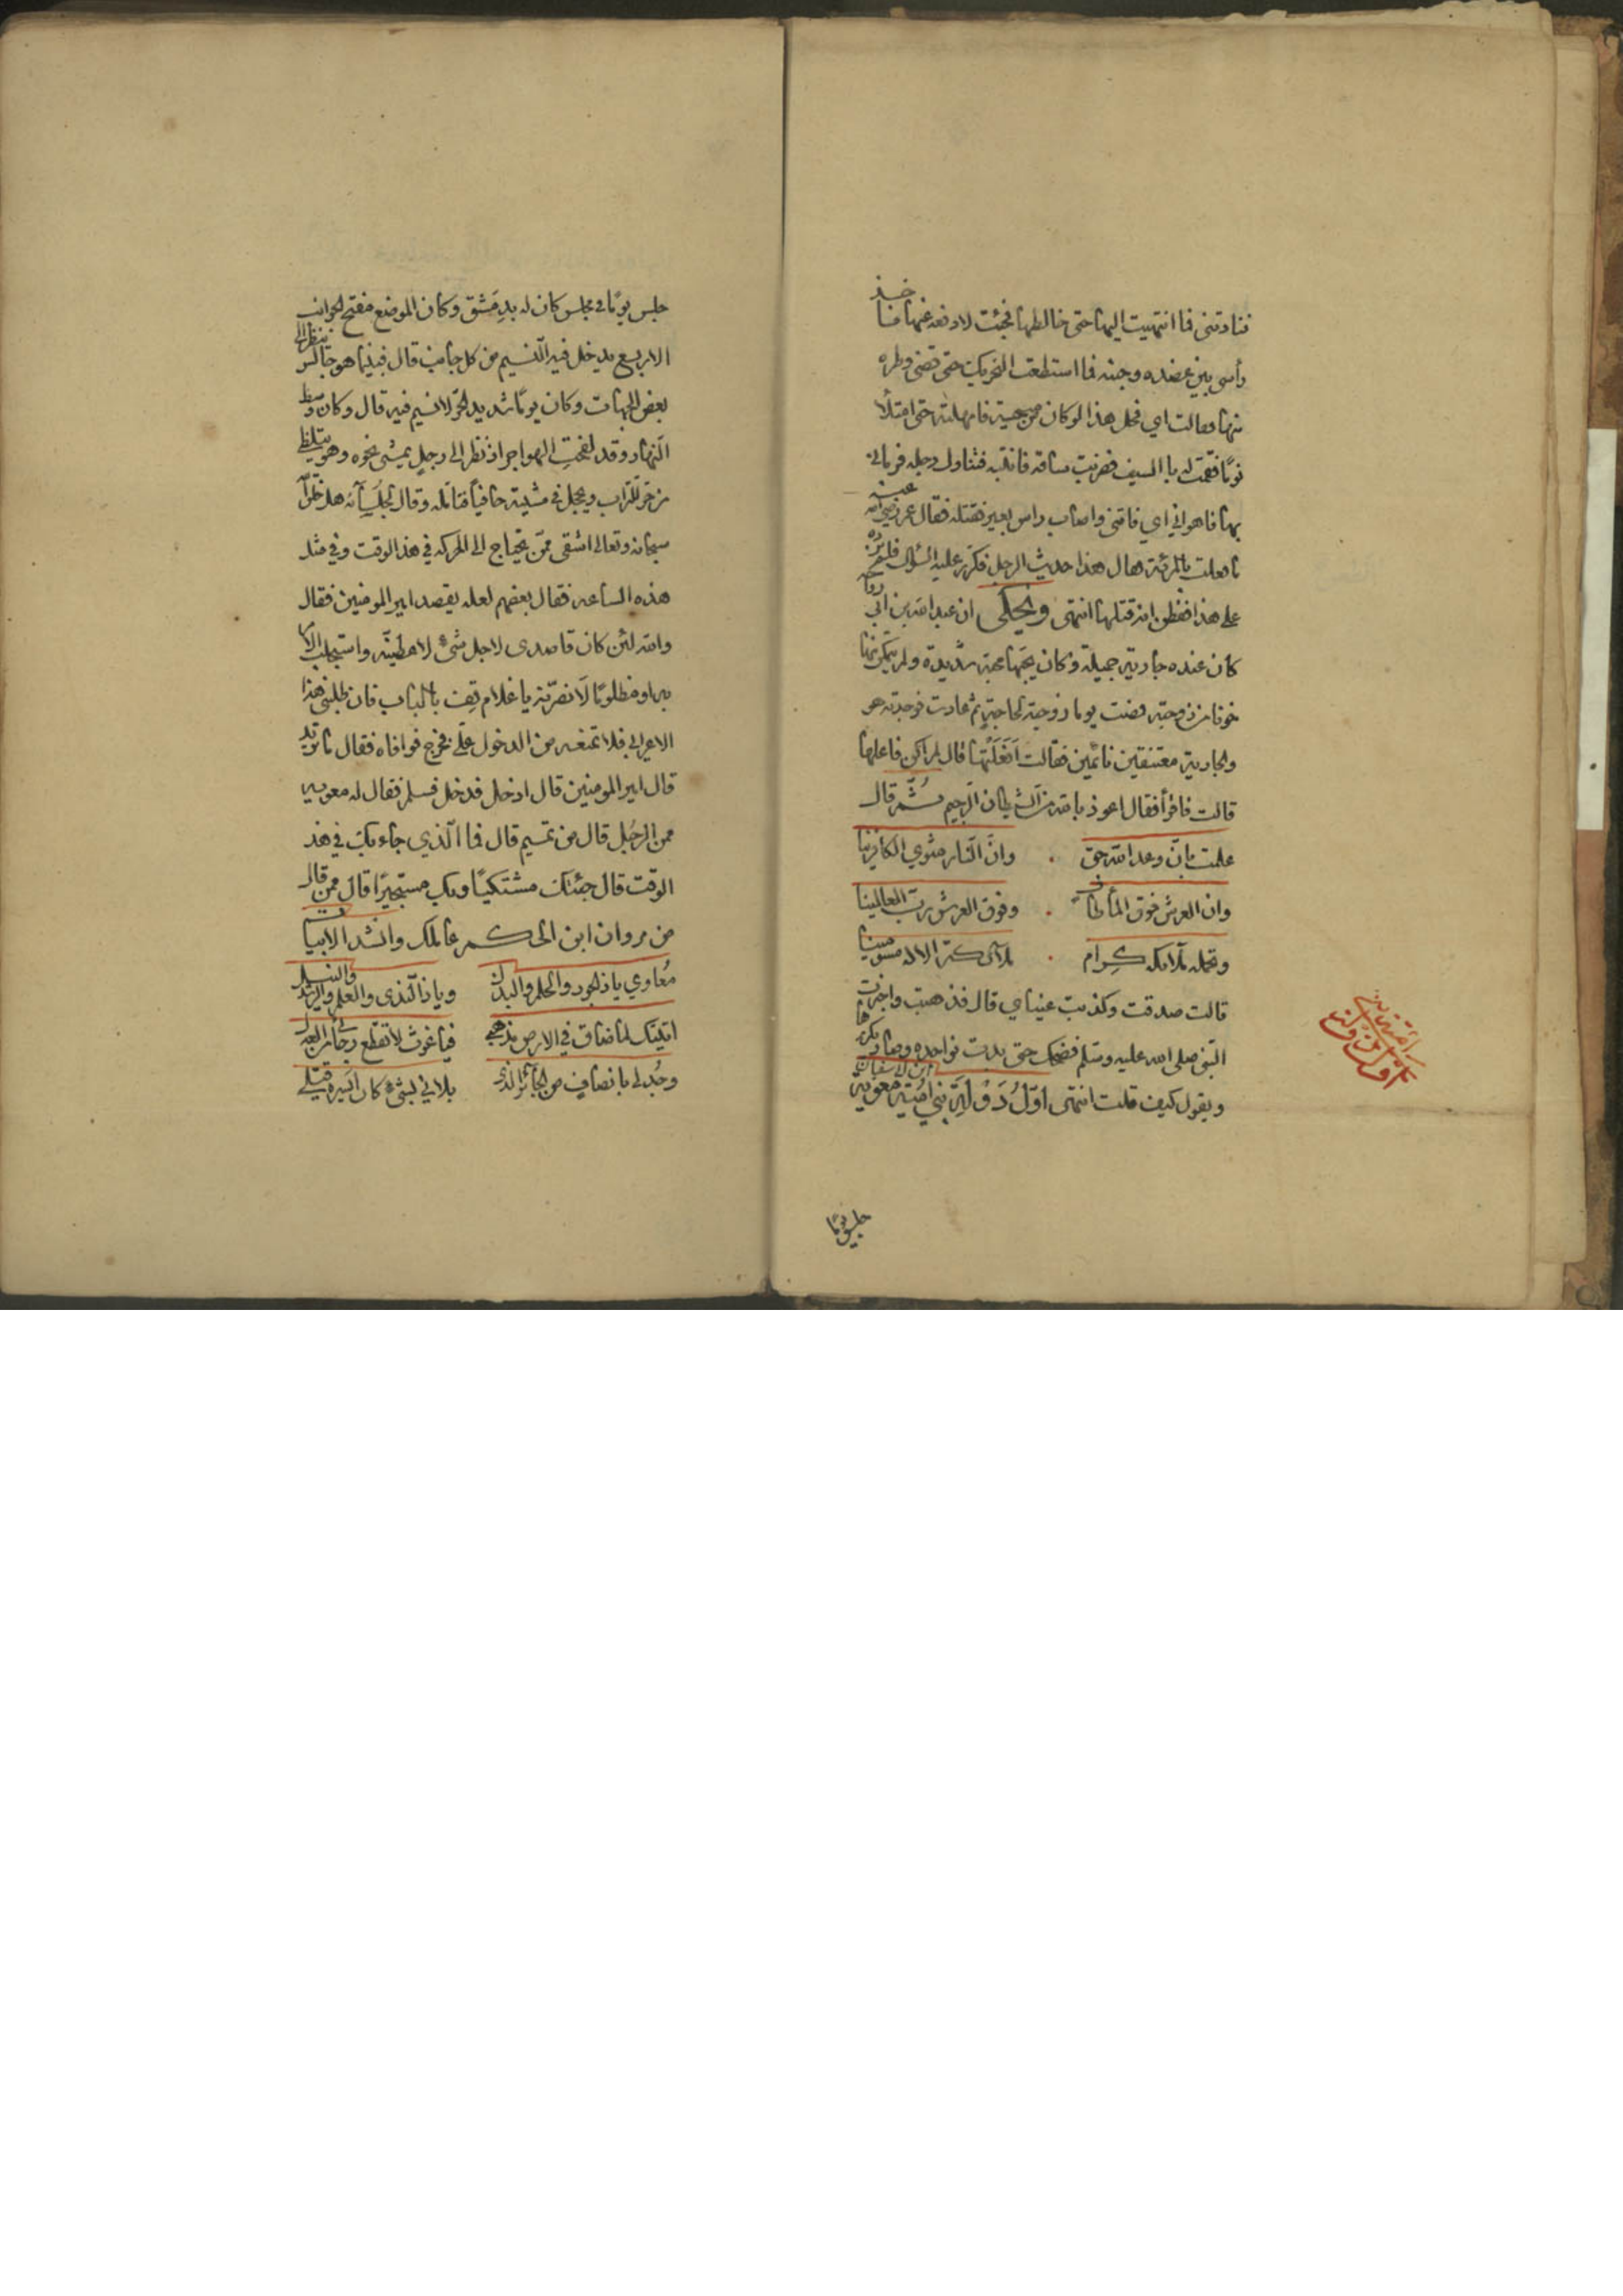 فنادتني فما انتهيت اليها حتى خالطها فجئت لادفعه عنها فاخذ
رأسي بين عضده وجنبه فما استطعت التحريك حتى قضى وطره
منها فقالت اي فحل هذا لو كان من جسية فامهلته حتى امتلأ
نومًا فقمت له بالسيف فضربت ساقه فانتبه فتناول رجله فرماني
بها فاهواني اي فاتني واصاب راس بعير فقتله فقال عمر رضي الله عنه
ما فعلت بالمرئة قال هذا حديث الرجل فكرر عليه السؤال فلم يزده
على هذا فظن انه قتلها انتهى ويحكى ان عبد الله بن ابي رواحة
كان عنده جارية جميلة وكان يحبها محبة شديدة ولم يتمكن منها
خوفا من زوجته فمضت يوما زوجته لحاجةٍ ثم عادت فوجدته هو
والجارية معتنقين نائمين فقالت اَفَعَلْتَها قال لم اكن فاعلها
قالت فاقرأ فقال اعوذ بالله من الشيطان الرجيم ثُمّ قال
علمت بانّ وعد الله حق . وانّ النّار مثوي الكافرينا
وان العرش فوق المأ طاف . وفوق العرش رب العالمينا
وتحمله ملائكه كِرام . ملائكة الاله مسومينا
قالت صدقت وكذبت عيناي قال فذهبت واخبرت
النبي صلى الله عليه وسلم فضحك حتى بدت نواجده وصار يكررها
ويقول كيف قلت انتهى اوّلُ دَوْلَةِ بني اُميّة معوية ابن ابي سفيان
جلس يومًا
جلس يومًا في مجلس كان له بدِمَشق وكان الموضع مفتح الجوانب
الاربع يدخل فيه النّسيم من كل جانب قال فبينما هو جالس ينظر الى
بعض الجهات وكان يومًا شديد الحرّ لا نسيم فيه قال وكان وسط
النّهار وقد لفحتِ الهواجر اذ نظر الى رجل يمشي نحوه وهو يتلظى
من حر التّراب ويحجل في مشيته حافيًا فتامّله وقال لجلسآئه هل خلق الله
سبحانه وتعالى اشقى ممّن يحتاج الى الحركه في هذا الوقت وفي مثل
هذه الساعه فقال بعضهم لعله يقصد امير المومنين فقال
والله لئن كان قاصدى لاجل شيء لاعطينّه واستجلب الا
به او مظلومًا لَانصرنّه يا غلام قِف بالباب فان طلبني هذا
الاعرابي فلا تمنعه من الدخول عليّ فخرج فوافاه فقال ما تريد
قال امير المومنين قال ادخل فدخل فسلم فقال له معويه
ممن الرجُل قال من تميم قال فما الّذي جاء بك في هذ
الوقت قال جئتك مشتكيًا وبك مستجيرًا قال ممن قال
من مروان ابن الحكم عاملك وانشد الابيات
مُعاوي يا ذا الجود والحلم والبذل ويا ذا النّدى والعلم والرشد والنبل
اتيتك لما ضاق في الارض مذهبي فيا غوث لا تقطع رجائي من العدل
وجُد لي بانصافٍ من الجائر الذي بلاني بشيء كان ايسره قتلي